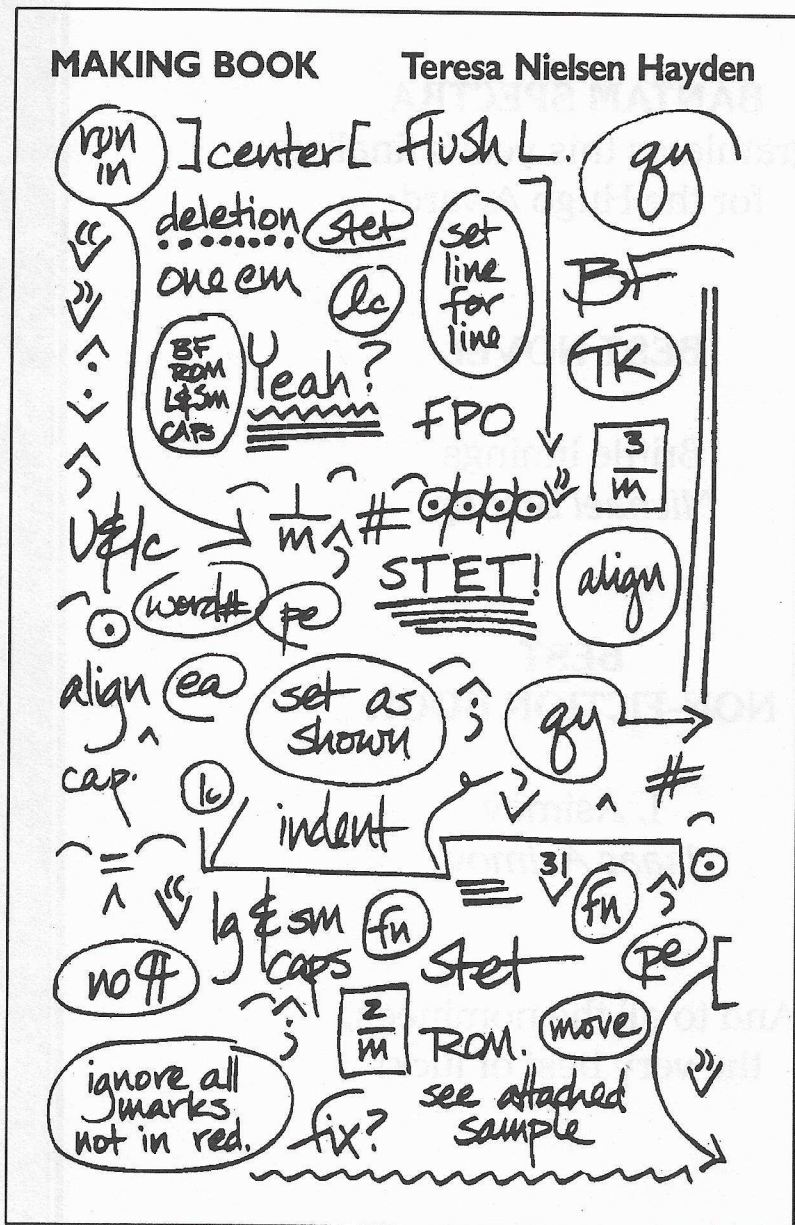 MAKING BOOK Teresa Nielsen Hayden
run in ] center [ flush L. qy
deletion stet set line for line
one em lc BF
BF ROM L&Sm CAPS Yeah? TK
FPO 3/m
U&lc 1/m # STET! align
word# pe
align ea set as shown qy
cap. lc indent #
31
lg & sm caps fn fn
no ¶ stet pe
2/m ROM. move
ignore all marks not in red. fix? see attached sample